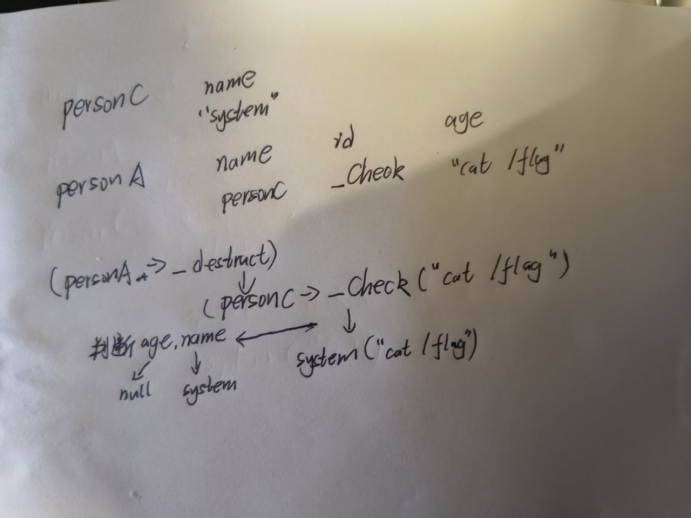 personC name
"system"
name id age
personA personC _Check "cat /flag"
(personA -> _destruct)
(personC -> _Check ("cat /flag")
判断 age, name
system ("cat /flag")
null system